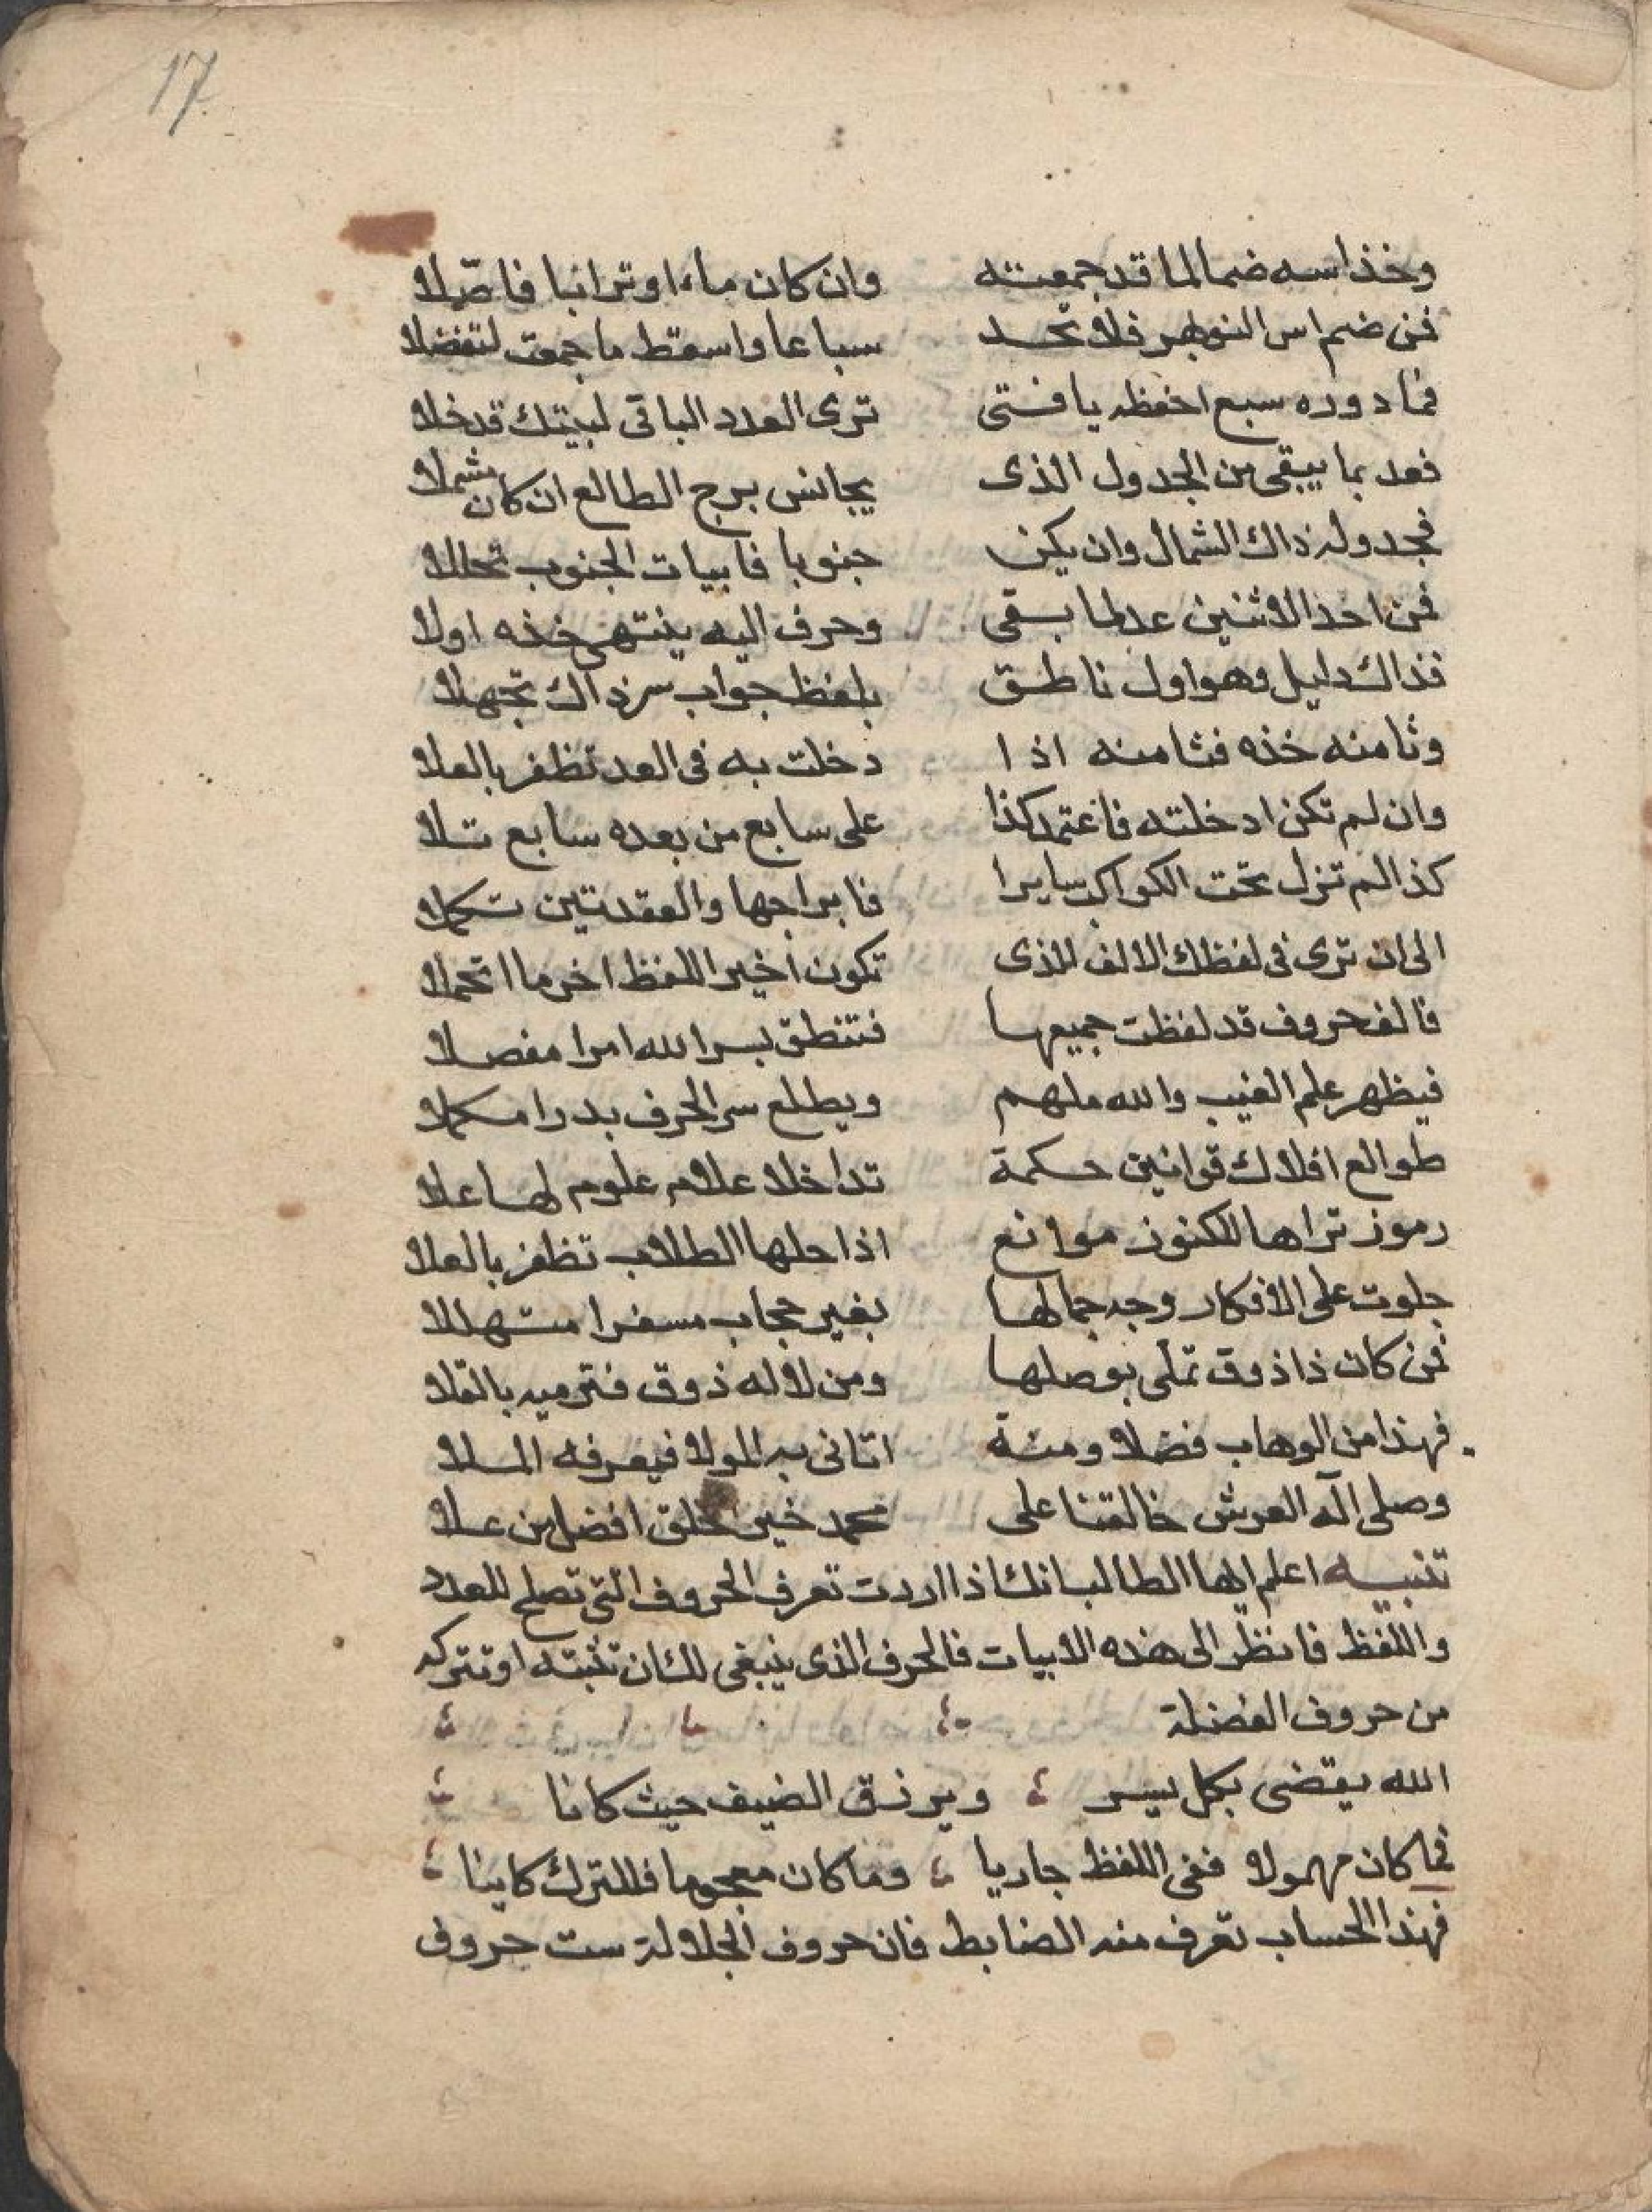 17
وخذ اسه ضما لما قد جمعته وان كان ماء او ترابيا فاصلا
فمن ضم اس النوبهر فلا تحد سباعا واسقط ما جمعت لتفضلا
فما دوره سبع احفظه يا فتى ترى العدد الباقى لبيتك قد خلا
فعد بما يبقى من الجدول الذى يجانس برج الطالع ان كان شملا
فجدوله ذاك الشمال وان يكن جنوبا فابيات الجنوب تحللا
فمن احد الاثنين عد لما بقى وحرف اليه ينتهى خذه اولا
فذاك دليل وهو اول ناطق بلفظ جواب سر ذاك تجهلا
وثامنه خذه فثامنه اذا دخلت به فى العد تظفر بالعلا
وان لم تكن ادخلته فاعتمد كذا على سابع من بعده سابع تلا
كذا لم تزل تحت الكواكب سايرا فابراجها والعقدتين تكملا
الى ان ترى فى لفظك الالف الذى تكون اخير اللفظ اخر ما اتحملا
فالف حروف قد لفظت جميعها فتنطق بسر الله امرا مفصلا
فيظهر علم الغيب والله ملهم ويطلع سر الحرف بدرا مكملا
طوالع افلاك قوانين حكمة تداخلا علام علوم لها علا
رموز تراها للكنوز موانع اذا حلها الطلاب تظفر بالعلا
جلوت على الافكار وجه جمالها بغير حجاب مسفرا متهللا
فمن كان ذا ذوق تملى بوصلها ومن لا له ذوق فترميه بالقلا
فهذا من الوهاب فضلا ومنة اتانى به المولا فيعرفه الملا
وصلى اله العرش خالقنا على محمد خير خلق افضل من علا
تنبيه اعلم ايها الطالب انك اذا اردت تعرف الحروف التى تصلح للعدد
واللفظ فانظر الى هذه الابيات فالحرف الذى ينبغى لك ان تثبته او تتركه
من حروف الفضلة
الله يقضى بكل يسر ويرزق الضيف حيث كانا
فما كان مهمولا ففى اللفظ جاريا وما كان معجوما فللترك كاينا
فهذا الحساب تعرف منه الضابط فان حروف الجلالة ست حروف